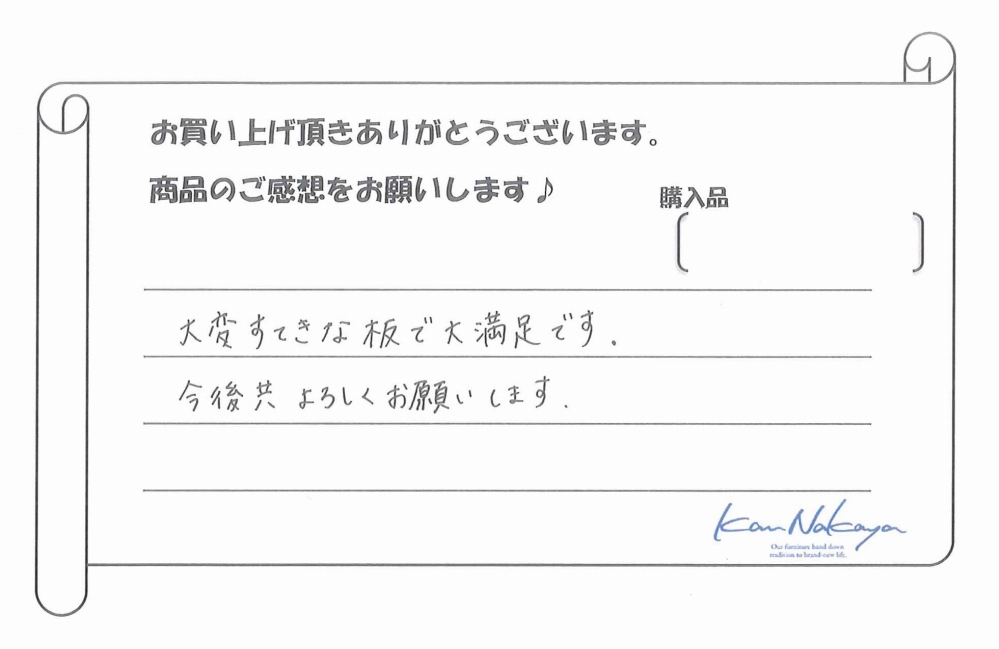 お買い上げ頂きありがとうございます。
商品のご感想をお願いします♪
購入品
大変すてきな板で大満足です.
今後共 よろしくお願いします.
Kan Nakaya
Our furniture hand down
tradition to brand-new life.